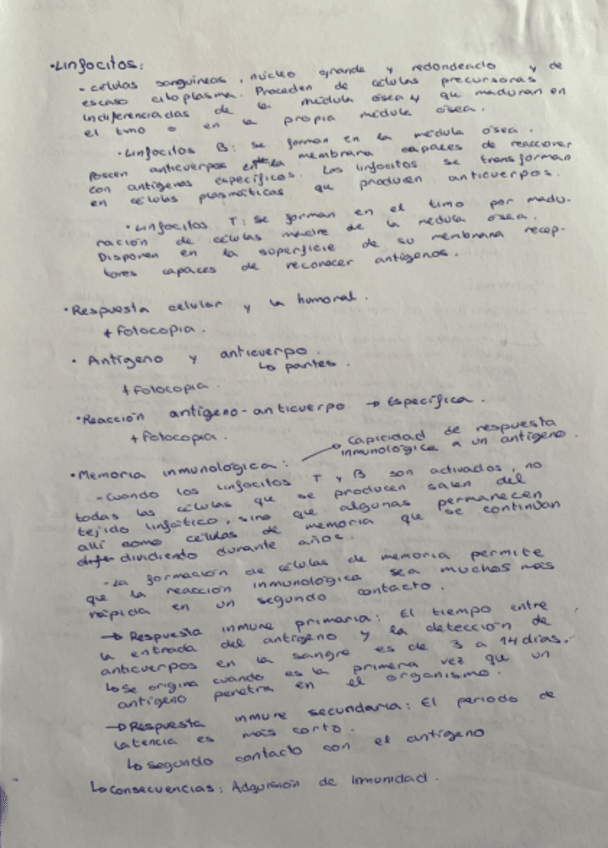 •Linfocitos:
- células sanguíneas, núcleo grande y redondeado y de
escaso citoplasma. Proceden de células precursoras
indiferenciadas de la médula ósea y que maduran en
el timo o en la propia médula ósea.
•Linfocitos B: se forman en la médula ósea.
Poseen anticuerpos en la membrana capaces de reaccionar
con antígenos específicos. Los linfocitos se transforman
en células plasmáticas que producen anticuerpos.
•Linfocitos T: se forman en el timo por madu-
ración de células madre de la médula ósea.
Disponen en la superficie de su membrana recep-
tores capaces de reconocer antígenos.
•Respuesta celular y la humoral.
+ fotocopia.
• Antígeno y anticuerpo.
↳ partes.
+ fotocopia.
•Reacción antígeno-anticuerpo → Específica.
+ fotocopia.
•Memoria inmunológica: → capicidad de respuesta
inmunológica a un antígeno.
-Cuando los linfocitos T y B son activados, no
todas las células que se producen salen del
tejido linfático, sino que algunas permanecen
allí como células de memoria que se continúan
dividiendo durante años.
-La formación de células de memoria permite
que la reacción inmunológica sea muchos más
rápida en un segundo contacto.
→ Respuesta inmune primaria: El tiempo entre
la entrada del antígeno y la detección de
anticuerpos en la sangre es de 3 a 14 días.
↳ Se origina cuando es la primera vez que un
antígeno penetra en el organismo.
→ Respuesta inmune secundaria: El periodo de
latencia es más corto.
↳ segundo contacto con el antígeno
↳ consecuencias: Adquisión de inmunidad.